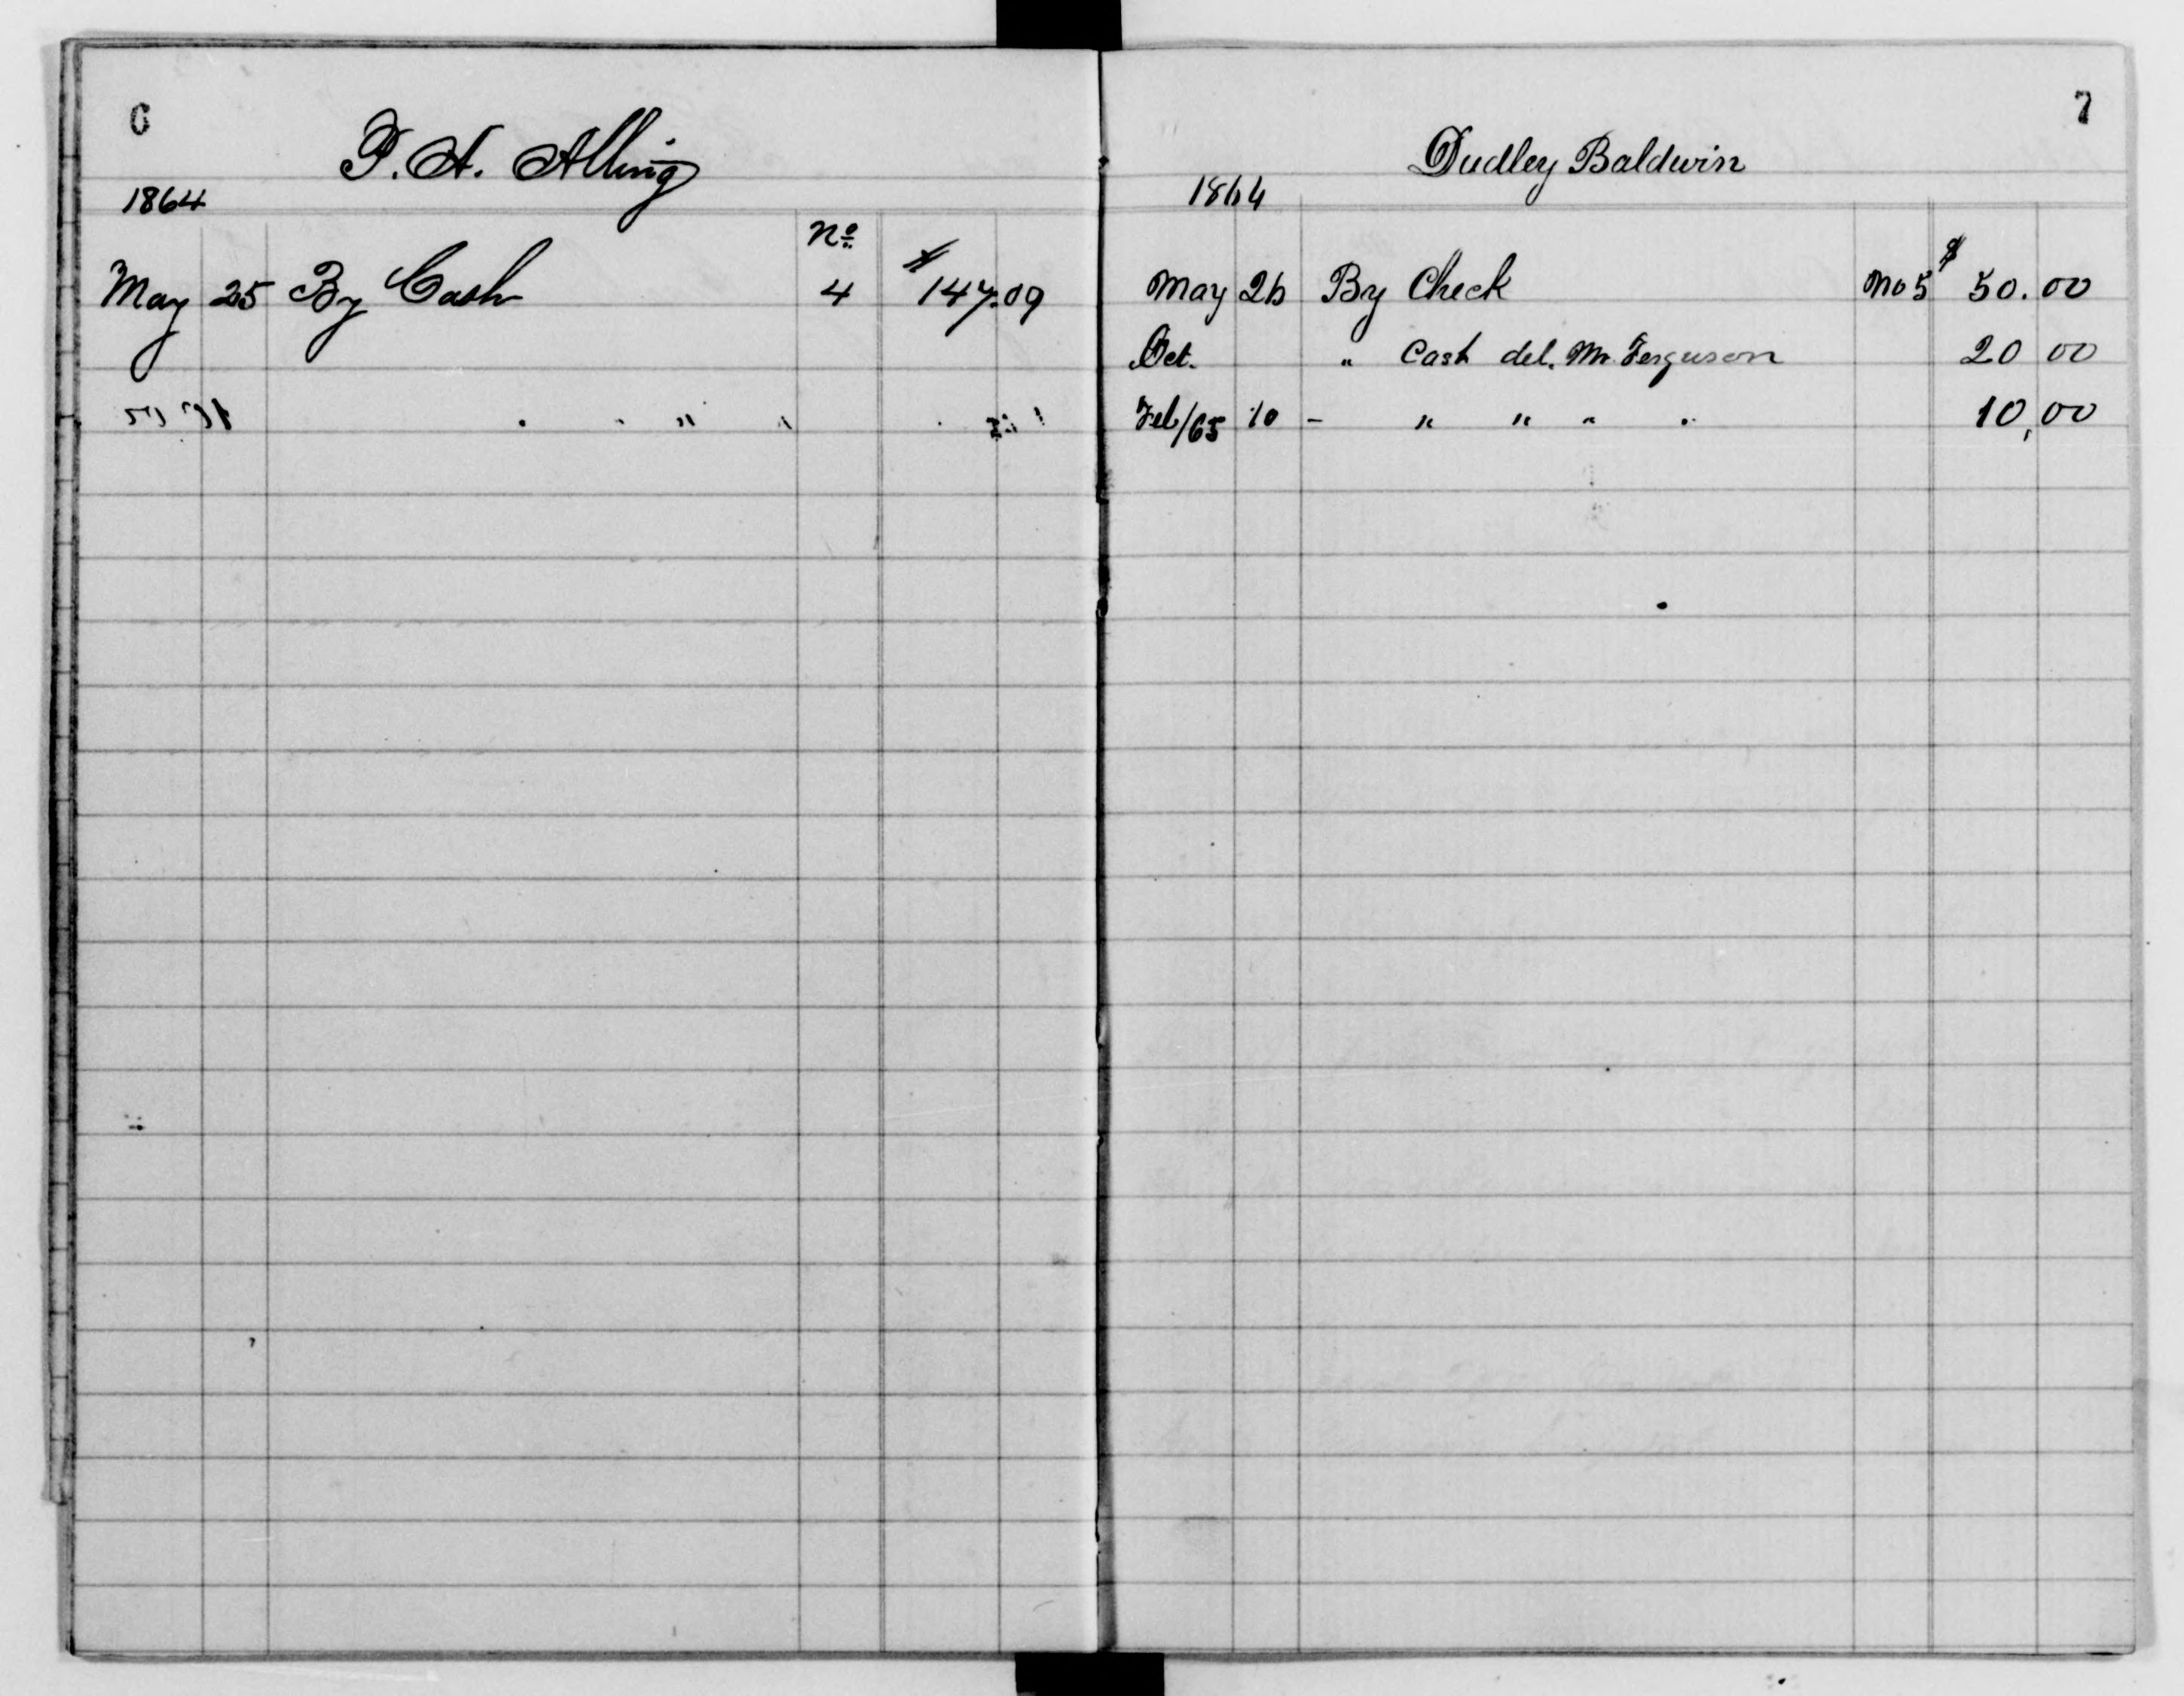 6
P. A. Alling
1864
No $
May 25 By Cash 4 147.09
7
Dudley Baldwin
1864
$
May 26 By Check No 5 50.00
Oct. " Cash del. Mr Ferguson 20 00
Feb/65 10 - " " " " 10,00